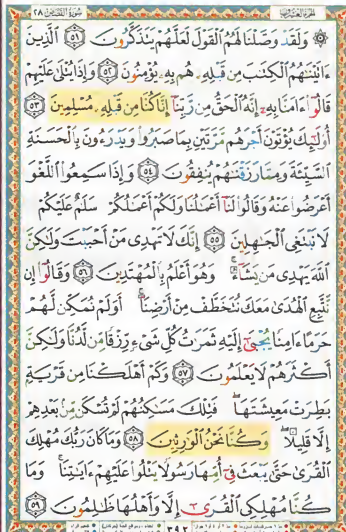 الجزء العشرون
سورة القصص ٢٨
۞ وَلَقَدْ وَصَّلْنَا لَهُمُ الْقَوْلَ لَعَلَّهُمْ يَتَذَكَّرُونَ ٥١ الَّذِينَ
ءَاتَيْنَٰهُمُ الْكِتَٰبَ مِن قَبْلِهِۦ هُم بِهِۦ يُؤْمِنُونَ ٥٢ وَإِذَا يُتْلَىٰ عَلَيْهِمْ
قَالُوٓا۟ ءَامَنَّا بِهِۦٓ إِنَّهُ الْحَقُّ مِن رَّبِّنَآ إِنَّا كُنَّا مِن قَبْلِهِۦ مُسْلِمِينَ ٥٣
أُو۟لَٰٓئِكَ يُؤْتَوْنَ أَجْرَهُم مَّرَّتَيْنِ بِمَا صَبَرُوا۟ وَيَدْرَءُونَ بِالْحَسَنَةِ
السَّيِّئَةَ وَمِمَّا رَزَقْنَٰهُمْ يُنفِقُونَ ٥٤ وَإِذَا سَمِعُوا۟ اللَّغْوَ
أَعْرَضُوا۟ عَنْهُ وَقَالُوا۟ لَنَآ أَعْمَٰلُنَا وَلَكُمْ أَعْمَٰلُكُمْ سَلَٰمٌ عَلَيْكُمْ
لَا نَبْتَغِى الْجَٰهِلِينَ ٥٥ إِنَّكَ لَا تَهْدِى مَنْ أَحْبَبْتَ وَلَٰكِنَّ
اللَّهَ يَهْدِى مَن يَشَآءُ ۚ وَهُوَ أَعْلَمُ بِالْمُهْتَدِينَ ٥٦ وَقَالُوٓا۟ إِن
نَّتَّبِعِ الْهُدَىٰ مَعَكَ نُتَخَطَّفْ مِنْ أَرْضِنَآ ۚ أَوَلَمْ نُمَكِّن لَّهُمْ
حَرَمًا ءَامِنًا يُجْبَىٰٓ إِلَيْهِ ثَمَرَٰتُ كُلِّ شَىْءٍ رِّزْقًا مِّن لَّدُنَّا وَلَٰكِنَّ
أَكْثَرَهُمْ لَا يَعْلَمُونَ ٥٧ وَكَمْ أَهْلَكْنَا مِن قَرْيَةٍۭ
بَطِرَتْ مَعِيشَتَهَا ۖ فَتِلْكَ مَسَٰكِنُهُمْ لَمْ تُسْكَن مِّنۢ بَعْدِهِمْ
إِلَّا قَلِيلًا ۖ وَكُنَّا نَحْنُ الْوَٰرِثِينَ ٥٨ وَمَا كَانَ رَبُّكَ مُهْلِكَ
الْقُرَىٰ حَتَّىٰ يَبْعَثَ فِىٓ أُمِّهَا رَسُولًا يَتْلُوا۟ عَلَيْهِمْ ءَايَٰتِنَا ۚ وَمَا
كُنَّا مُهْلِكِى الْقُرَىٰٓ إِلَّا وَأَهْلُهَا ظَٰلِمُونَ ٥٩
٣٩٢